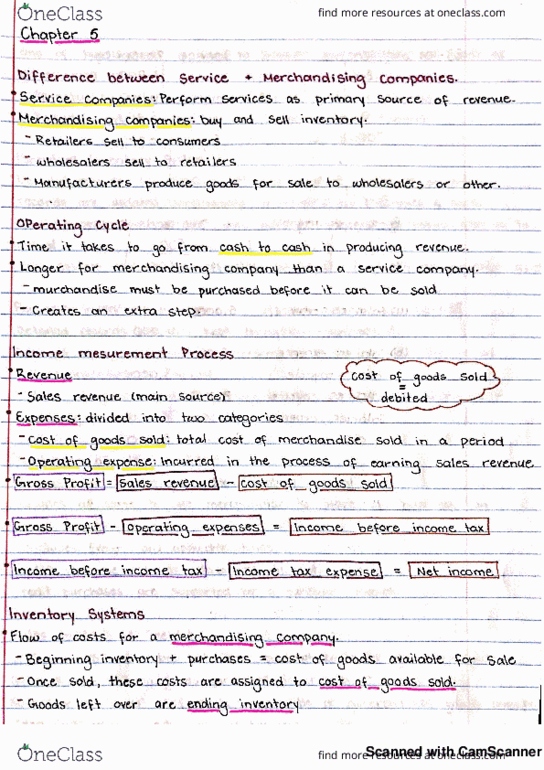 OneClass
find more resources at oneclass.com
Chapter 5
Difference between Service + Merchandising Companies.
Service companies: Perform services as primary source of revenue.
Merchandising companies: buy and sell inventory.
- Retailers sell to consumers
- wholesalers sell to retailers
- Manufacturers produce goods for sale to wholesalers or other.
Operating Cycle
Time it takes to go from cash to cash in producing revenue.
Longer for merchandising company than a service company.
- murchandise must be purchased before it can be sold
- Creates an extra step.
Income mesurement Process
Revenue
- Sales revenue (main source)
cost of goods sold
=
debited
Expenses: divided into two categories
- Cost of goods sold: total cost of merchandise sold in a period
- Operating expense: Incurred in the process of earning sales revenue
Gross Profit = Sales revenue - cost of goods sold
Gross Profit - Operating expenses = Income before income tax
Income before income tax - Income tax expense = Net income
Inventory Systems
Flow of costs for a merchandising company.
- Beginning inventory + purchases = cost of goods available for sale
- Once sold, these costs are assigned to cost of goods sold.
- Goods left over are ending inventory
OneClass
find more resources at oneclass.com
Scanned with CamScanner